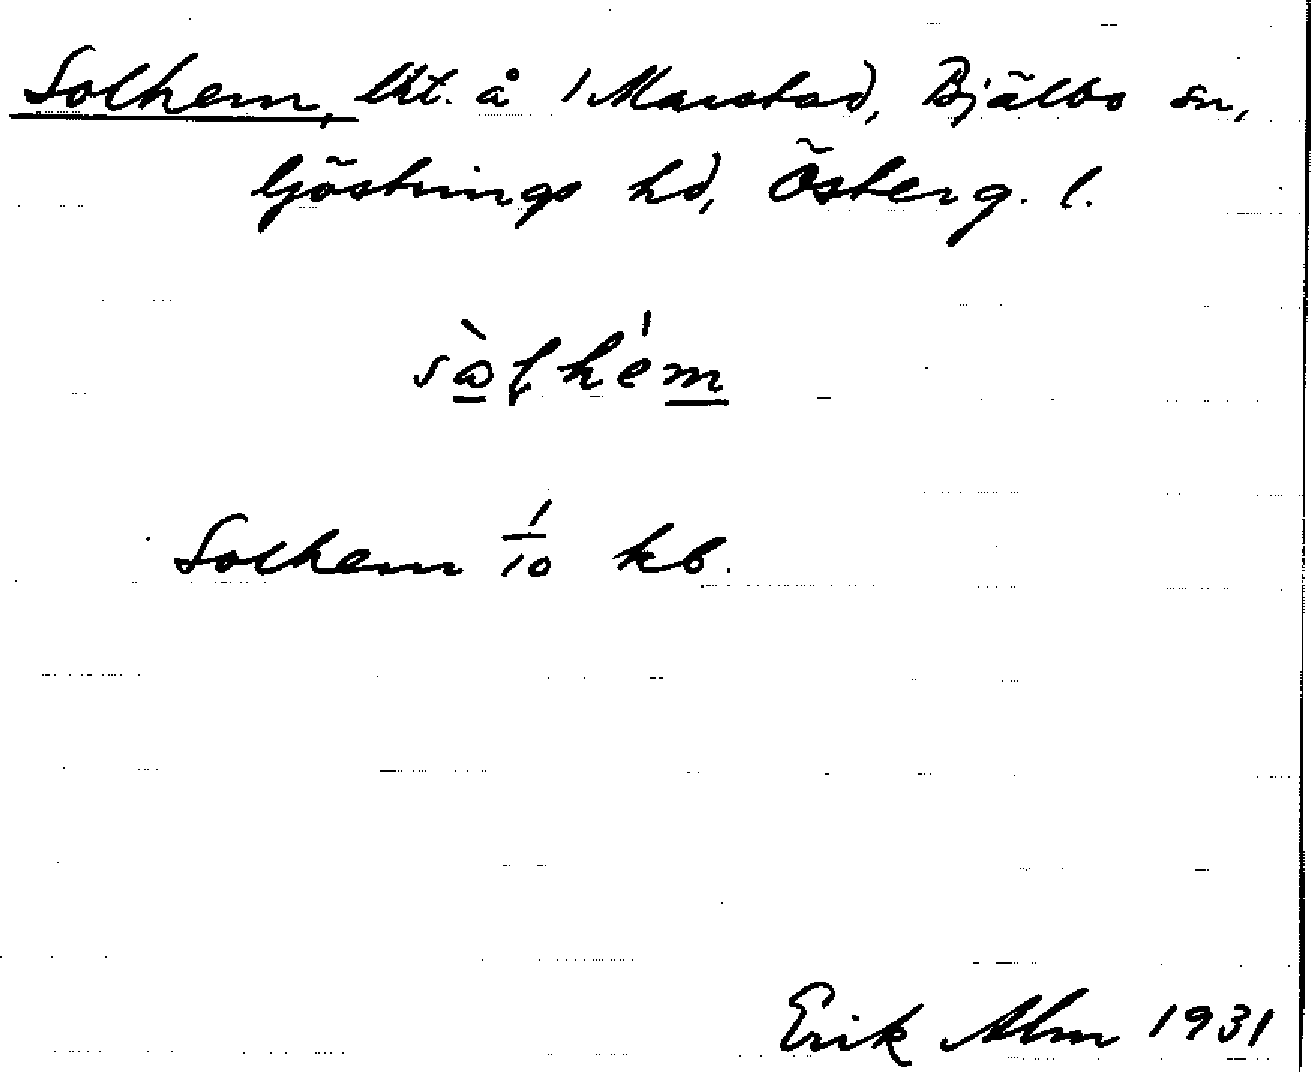 Solhem, lht. å 1 Marstad, Bjälbo sn,
Göstrings hd, Österg. l.
sòlhém
Solhem 1/10 kb.
Erik Alm 1931